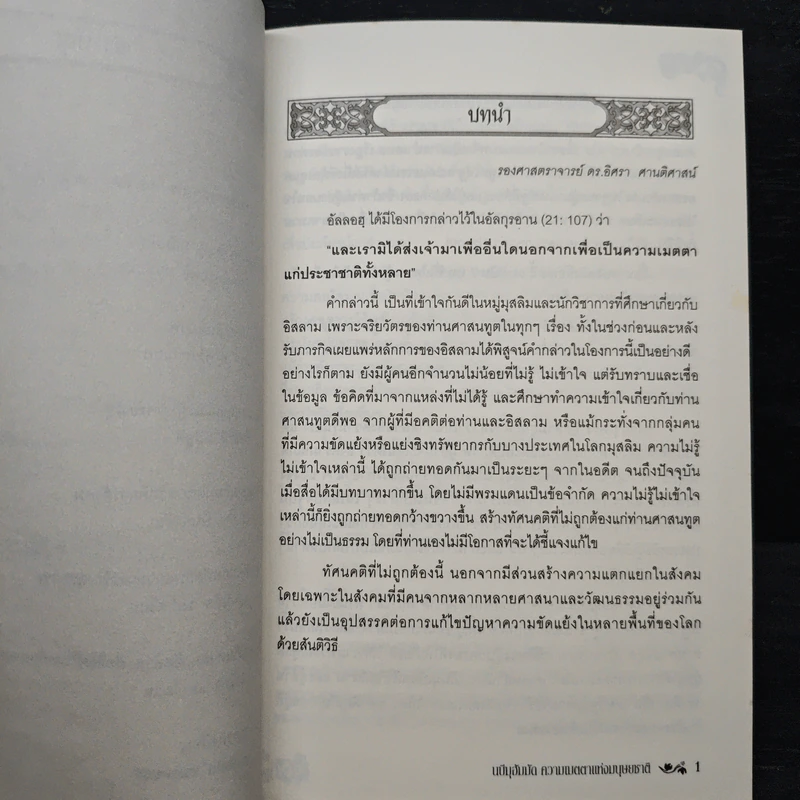 บทนำ
รองศาสตราจารย์ ดร.อิศรา ศานติศาสน์
อัลลอฮฺ ได้มีโองการกล่าวไว้ในอัลกุรอาน (21: 107) ว่า
"และเรามิได้ส่งเจ้ามาเพื่ออื่นใดนอกจากเพื่อเป็นความเมตตา
แก่ประชาชาติทั้งหลาย"
คำกล่าวนี้ เป็นที่เข้าใจกันดีในหมู่มุสลิมและนักวิชาการที่ศึกษาเกี่ยวกับ
อิสลาม เพราะจริยวัตรของท่านศาสนทูตในทุกๆ เรื่อง ทั้งในช่วงก่อนและหลัง
รับภารกิจเผยแพร่หลักการของอิสลามได้พิสูจน์คำกล่าวในโองการนี้เป็นอย่างดี
อย่างไรก็ตาม ยังมีผู้คนอีกจำนวนไม่น้อยที่ไม่รู้ ไม่เข้าใจ แต่รับทราบและเชื่อ
ในข้อมูล ข้อคิดที่มาจากแหล่งที่ไม่ได้รู้ และศึกษาทำความเข้าใจเกี่ยวกับท่าน
ศาสนทูตดีพอ จากผู้ที่มีอคติต่อท่านและอิสลาม หรือแม้กระทั่งจากกลุ่มคน
ที่มีความขัดแย้งหรือแย่งชิงทรัพยากรกับบางประเทศในโลกมุสลิม ความไม่รู้
ไม่เข้าใจเหล่านี้ ได้ถูกถ่ายทอดกันมาเป็นระยะๆ จากในอดีต จนถึงปัจจุบัน
เมื่อสื่อได้มีบทบาทมากขึ้น โดยไม่มีพรมแดนเป็นข้อจำกัด ความไม่รู้ไม่เข้าใจ
เหล่านี้ก็ยิ่งถูกถ่ายทอดกว้างขวางขึ้น สร้างทัศนคติที่ไม่ถูกต้องแก่ท่านศาสนทูต
อย่างไม่เป็นธรรม โดยที่ท่านเองไม่มีโอกาสที่จะได้ชี้แจงแก้ไข
ทัศนคติที่ไม่ถูกต้องนี้ นอกจากมีส่วนสร้างความแตกแยกในสังคม
โดยเฉพาะในสังคมที่มีคนจากหลากหลายศาสนาและวัฒนธรรมอยู่ร่วมกัน
แล้วยังเป็นอุปสรรคต่อการแก้ไขปัญหาความขัดแย้งในหลายพื้นที่ของโลก
ด้วยสันติวิธี
นบีมุฮัมมัด ความเมตตาแห่งมนุษยชาติ 1